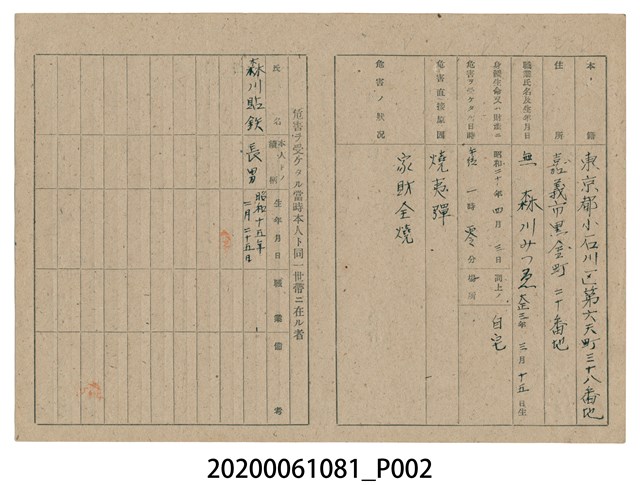 本籍 東京都小石川区第六天町三十八番地
住所 嘉義市黒金町二十番地
職業氏名及生年月日 無 森川みつゑ 大正三年 三月 十五日生
身体生命又ハ財産ニ危害ヲ受ケタル日時 昭和二十年 四月 三日 午後 一時 零分 同上ノ場所 自宅
危害直接原因 焼夷弾
危害ノ状況 家財全焼
危害ヲ受ケタル当時本人ト同一世帯ニ在ル者
氏名 本人トノ続柄 生年月日 職業 備考
森川 長男 昭和十五年 二月二十五日
20200061081_P002